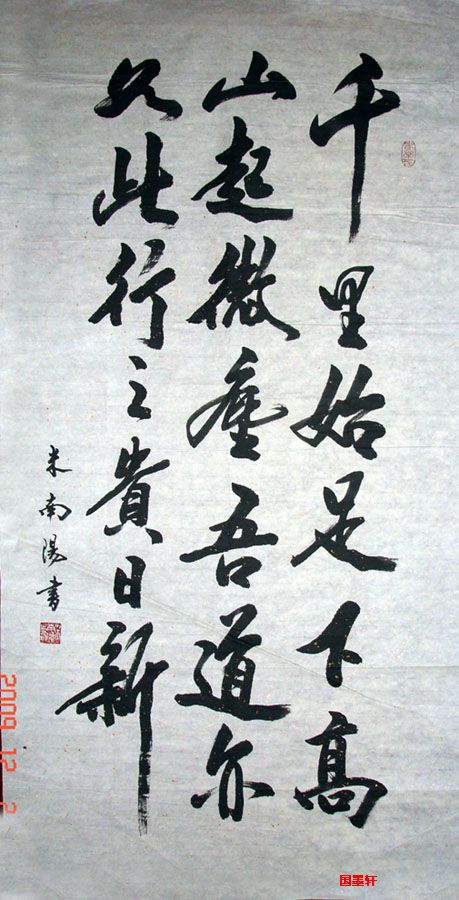 千里始足下高
山起微塵吾道亦
如此行之貴日新
米南陽書
2009 12 2
国墨轩